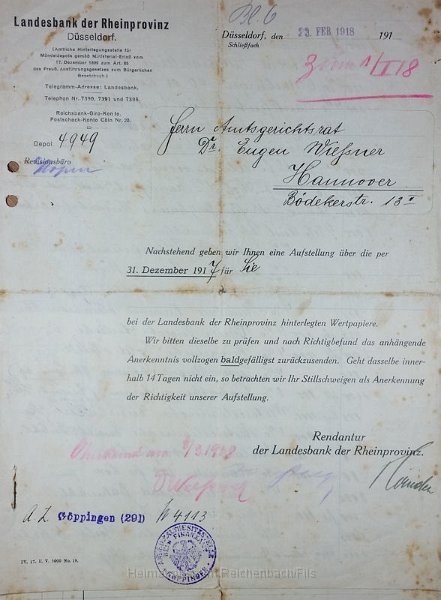 Bl. 6
Landesbank der Rheinprovinz
Düsseldorf.
(Amtliche Hinterlegungsstelle für
Mündeldepots gemäß Ministerial-Erlaß vom
17. Dezember 1899 zum Art. 85
des Preuß. Ausführungsgesetzes zum Bürgerlichen
Gesetzbuch.)
Telegramm-Adresse: Landesbank.
Telephon Nr. 7390, 7391 und 7398.
Reichsbank-Giro-Konto.
Postscheck-Konto Cöln Nr. 20.
Depot 4949
Revisionsbüro
Düsseldorf, den 23. FEB 1918 191
Schließfach
Herrn Amtsgerichtsrat
Dr. Eugen Wießner
Hannover
Bödekerstr. 13
Nachstehend geben wir Ihnen eine Aufstellung über die per
31. Dezember 1917 für Sie
bei der Landesbank der Rheinprovinz hinterlegten Wertpapiere.
Wir bitten dieselbe zu prüfen und nach Richtigbefund das anhängende
Anerkenntnis vollzogen baldgefälligst zurückzusenden. Geht dasselbe inner-
halb 14 Tagen nicht ein, so betrachten wir Ihr Stillschweigen als Anerkennung
der Richtigkeit unserer Aufstellung.
Rendantur
der Landesbank der Rheinprovinz.
Göppingen (291) 4113
GÖPPINGEN
Heimat Reichenbach/Fils